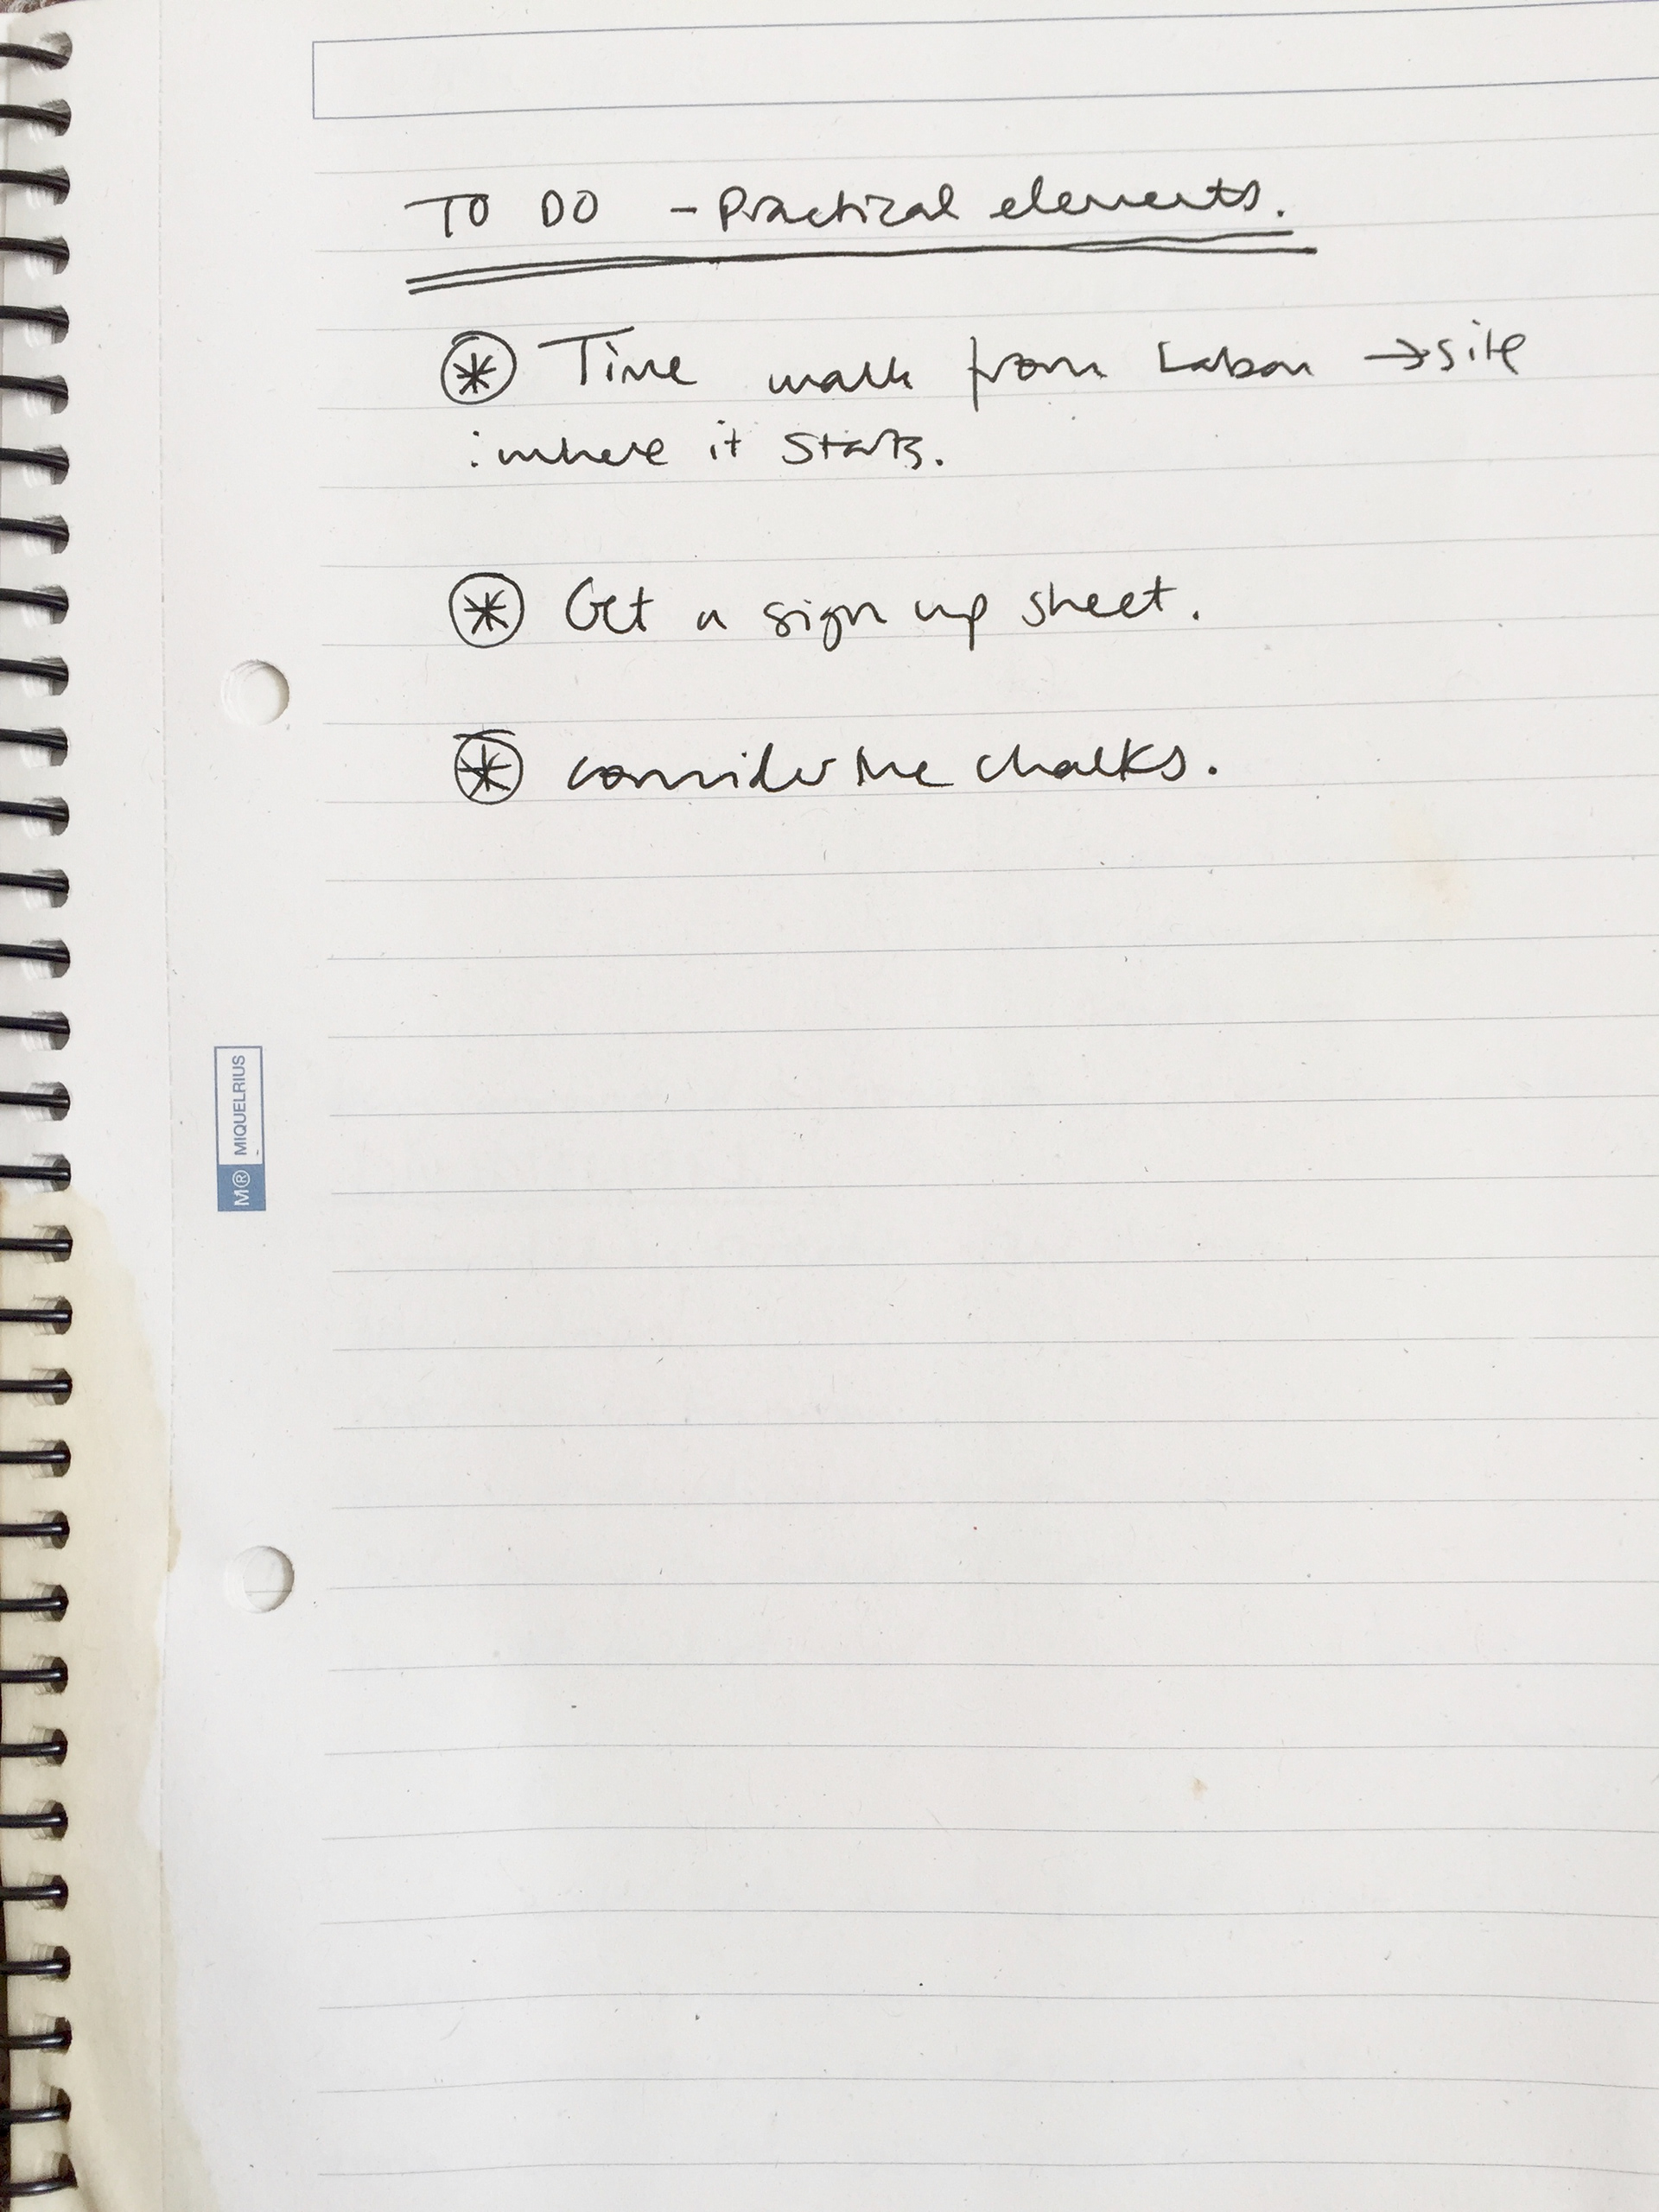 TO DO - Practical elements.
* Time walk from Laban → site
: where it starts.
* Get a sign up sheet.
* consider the chalks.
M® MIQUELRIUS